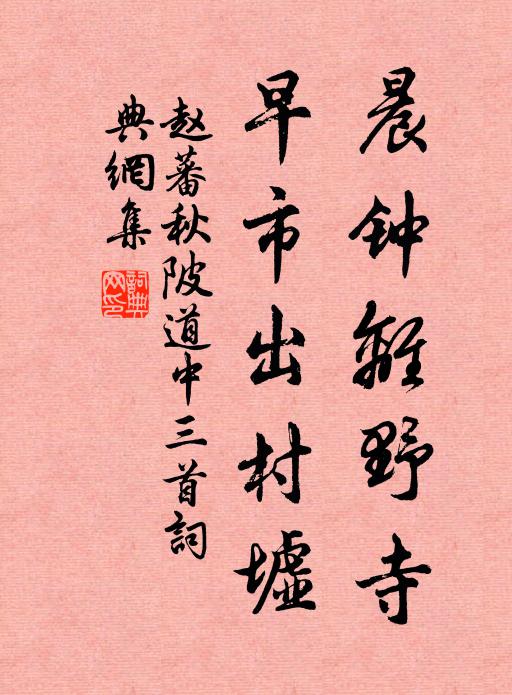 晨钟離野寺
早市出村墟
赵蕃秋陂道中三首詞
典網集
詞典網印